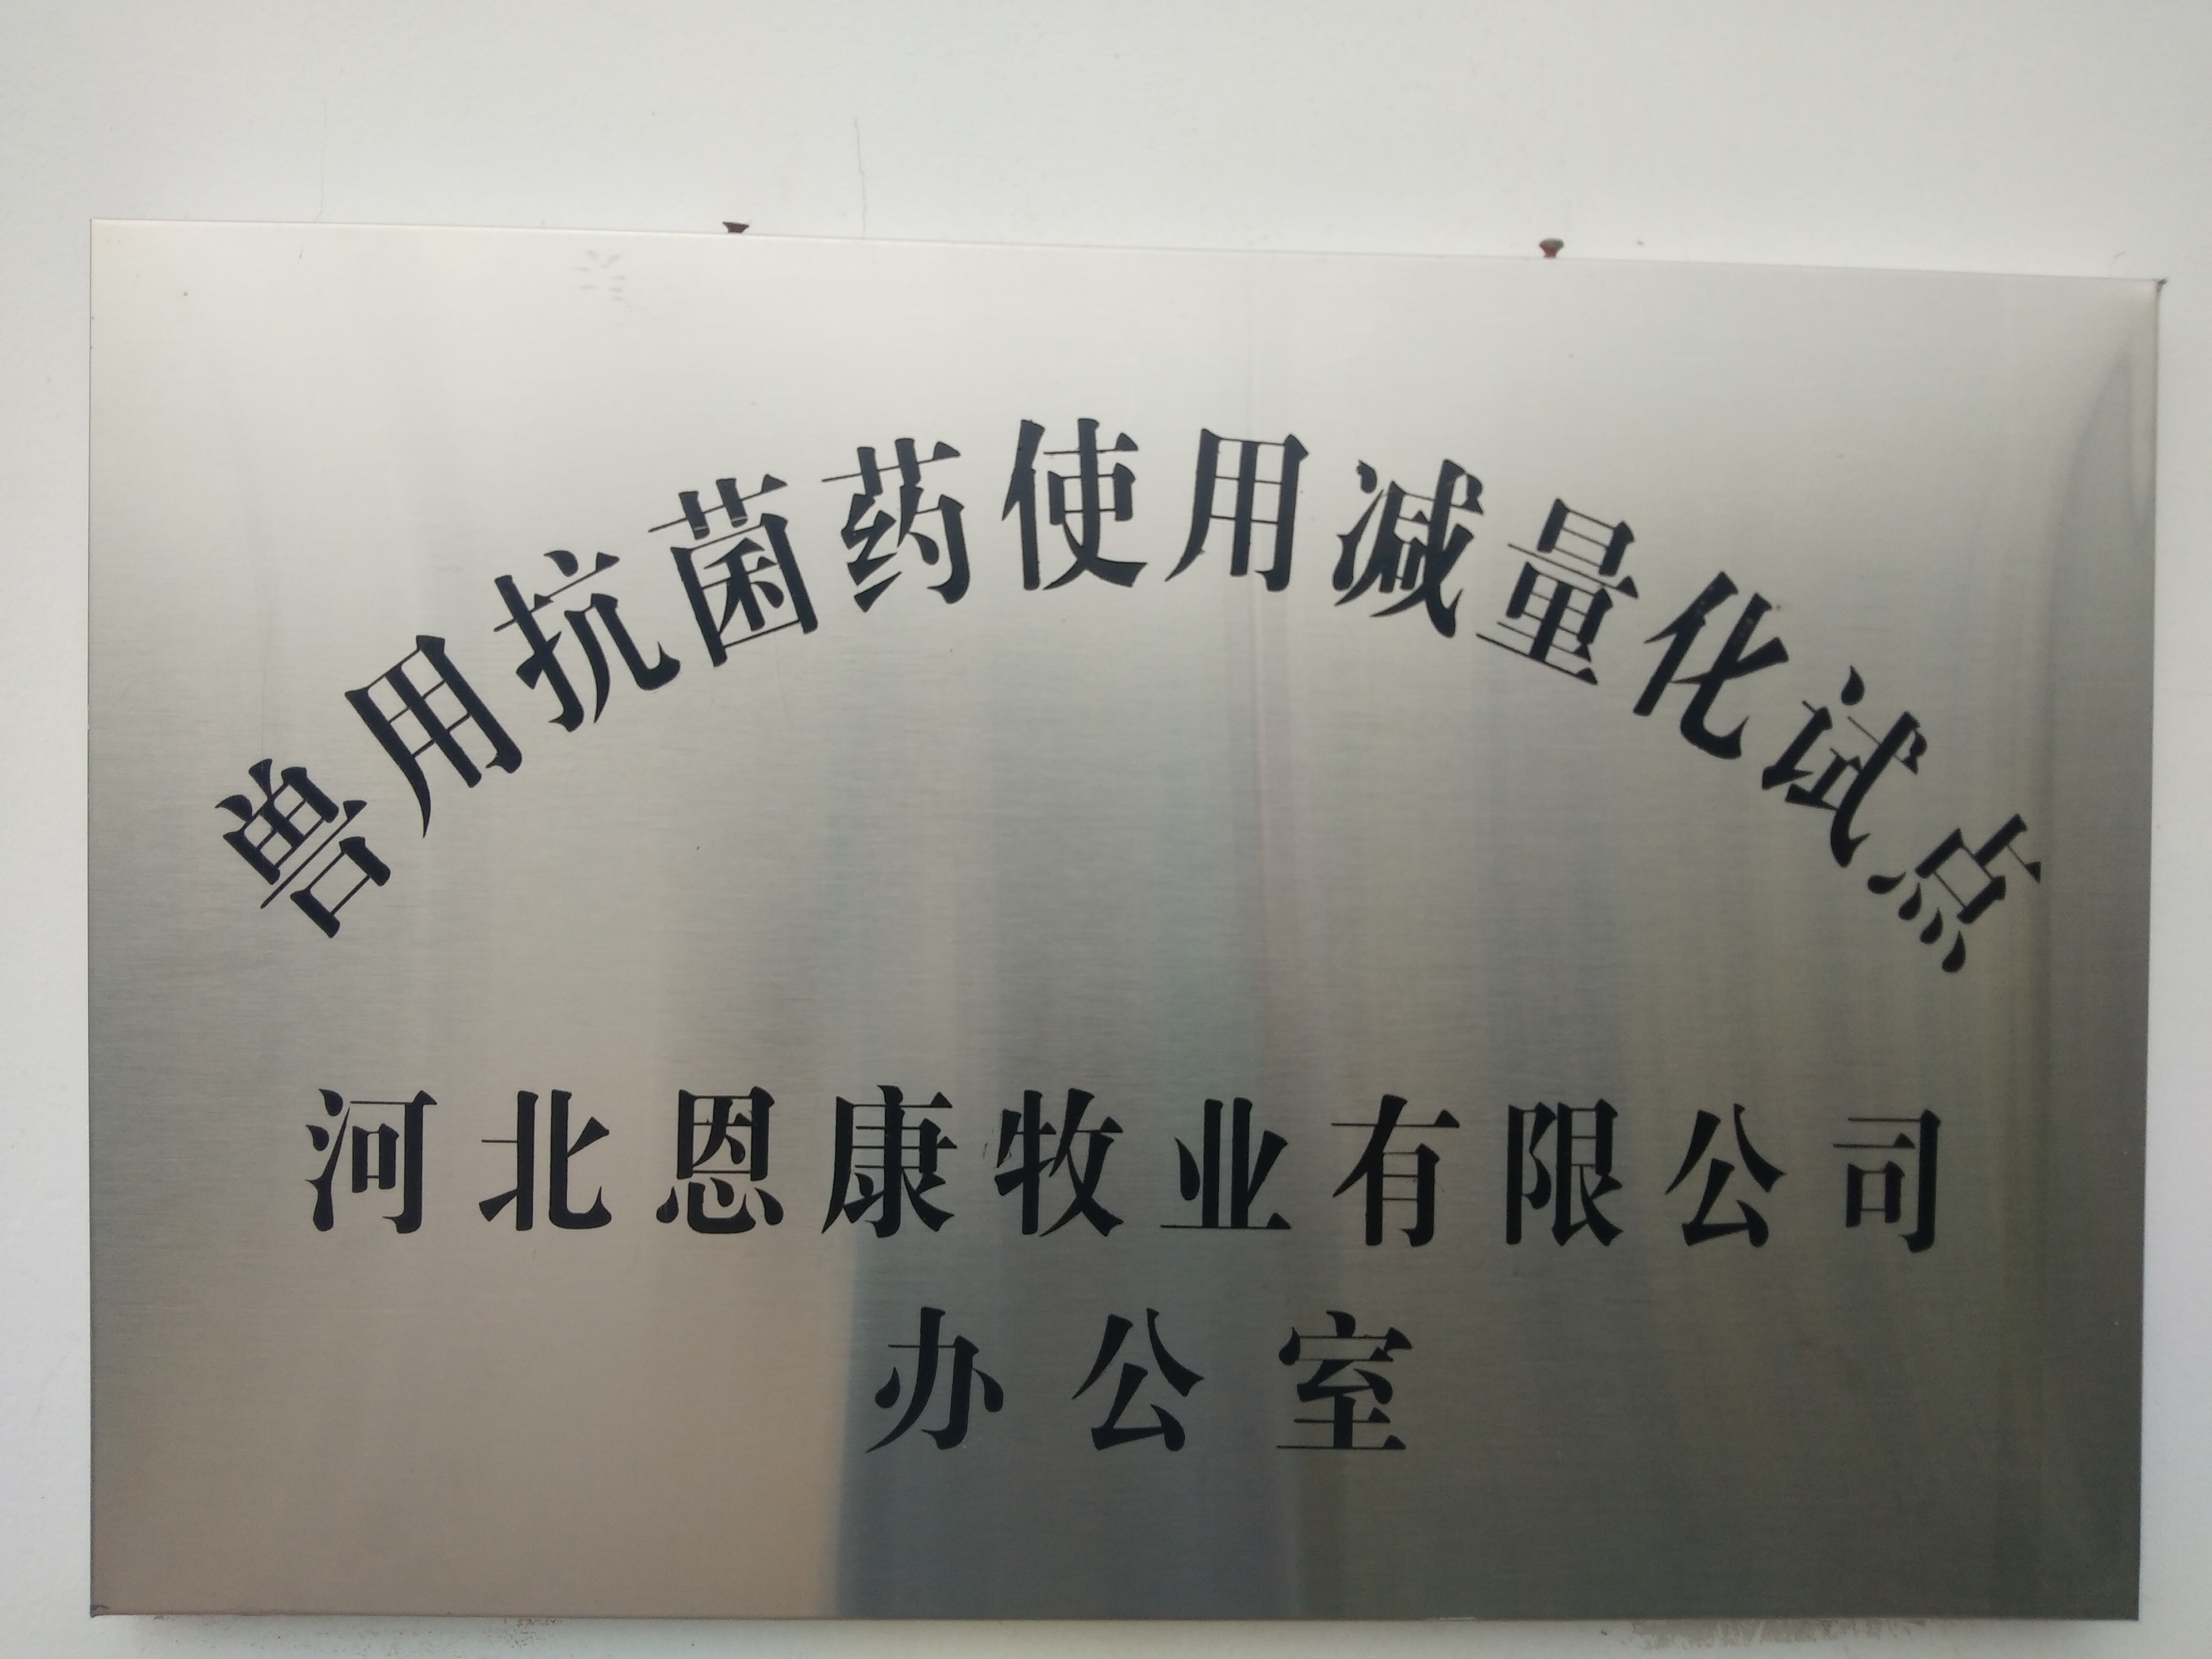 兽用抗菌药使用减量化试点
河北恩康牧业有限公司
办公室